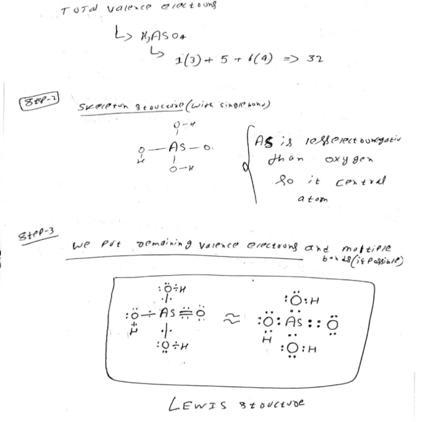 Total valence electrons
↳ H₃AsO₄
↳ 1(3) + 5 + 6(4) => 32
Step-2
Skeleton structure (with single bond)
O-H
O — As — O
H
O-H
As is less electronegativ
than oxygen
so it central
atom
Step-3
We put remaining valence electrons and multiple
bonds (if possible)
:Ö÷H :Ö:H
:Ö÷As≡Ö ≈ :Ö:As::Ö
H H
:Ö÷H :Ö:H
LEWIS structure